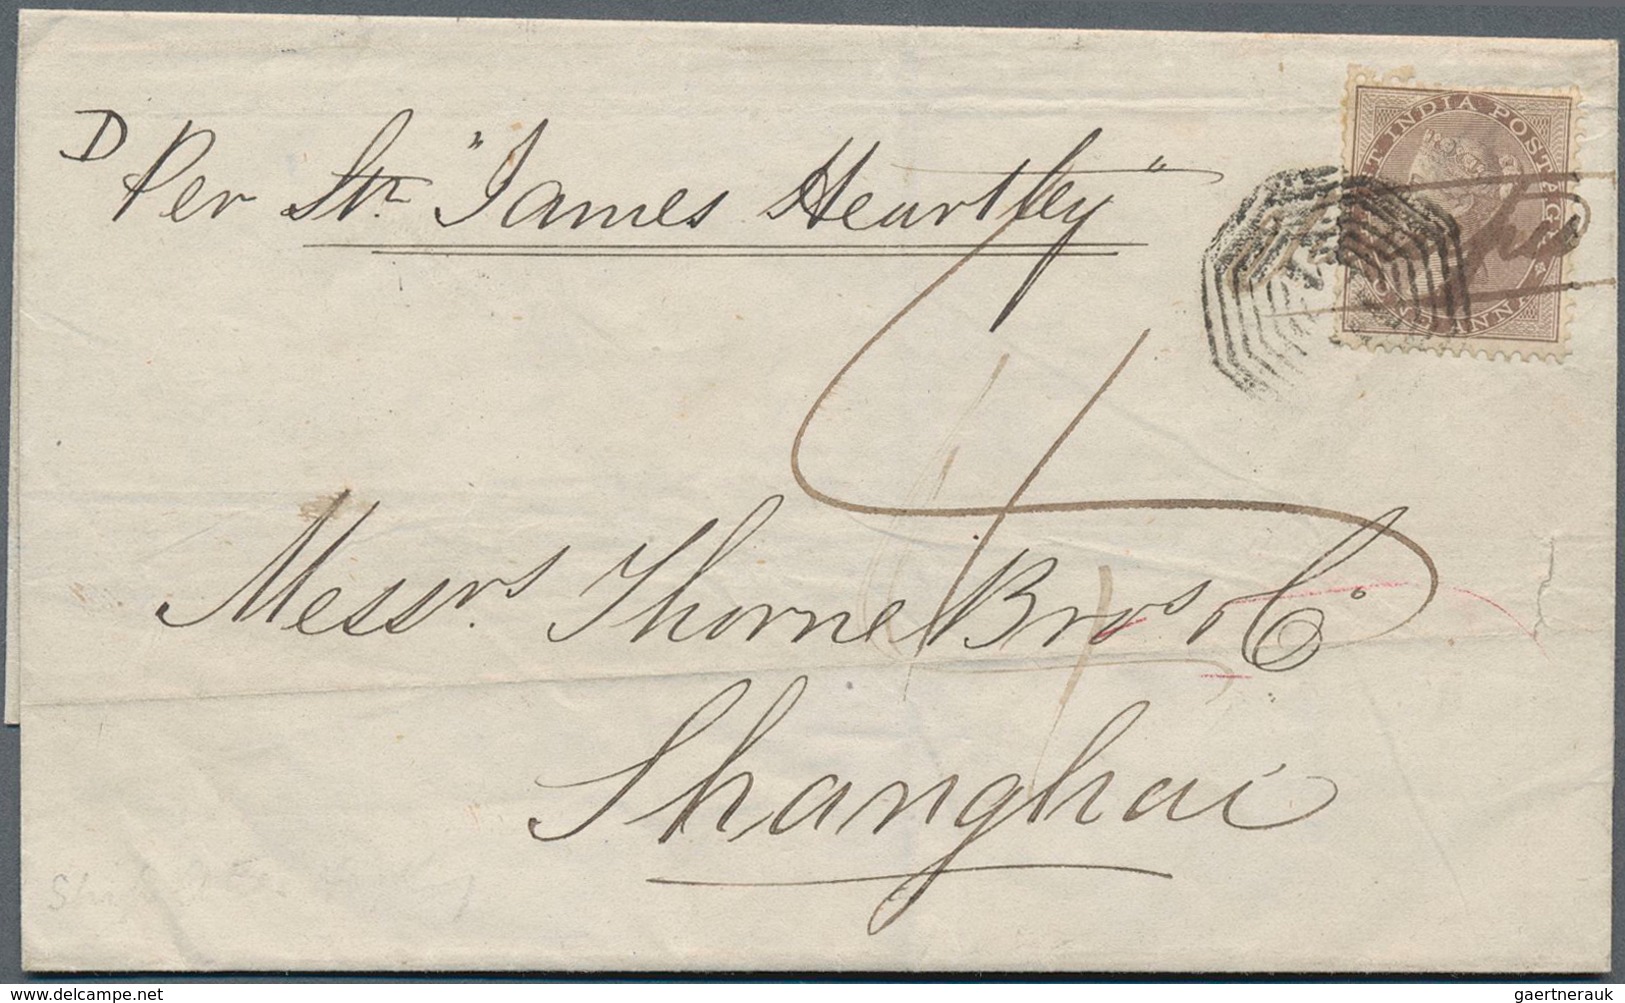 D
Per Str. "James Heartley"
EAST INDIA POSTAGE
ONE ANNA
4
Messrs. Thorne Bros & Co
Shanghai
delcampe.net
gaertnerauk